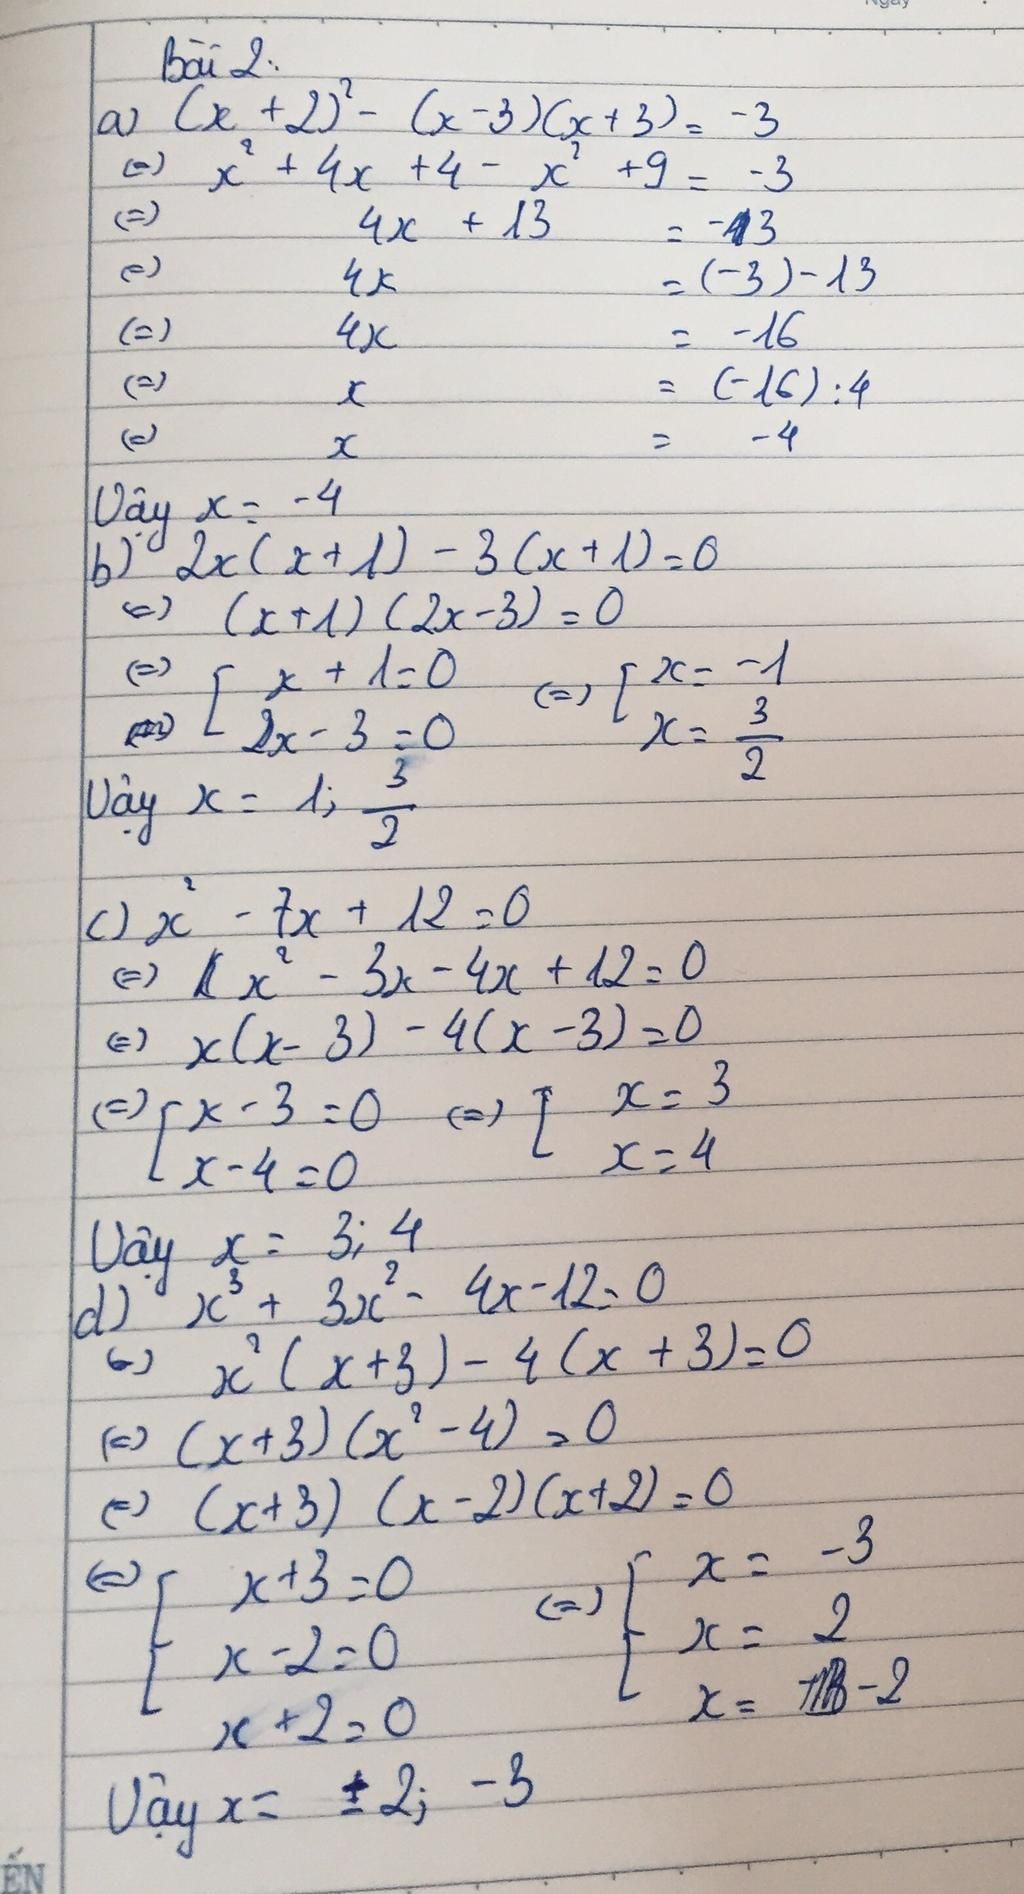 Ngày
Bài 2:
a) (x + 2)² - (x - 3)(x + 3) = -3
(=) x² + 4x + 4 - x² + 9 = -3
(=) 4x + 13 = -3
(=) 4x = (-3) - 13
(=) 4x = -16
(=) x = (-16) : 4
(=) x = -4
Vậy x = -4
b) 2x(x + 1) - 3(x + 1) = 0
(=) (x + 1)(2x - 3) = 0
(=) [ x + 1 = 0 (=) [ x = -1
2x - 3 = 0 x = 3/2
Vậy x = 1; 3/2
c) x² - 7x + 12 = 0
(=) x² - 3x - 4x + 12 = 0
(=) x(x - 3) - 4(x - 3) = 0
(=) [ x - 3 = 0 (=) [ x = 3
x - 4 = 0 x = 4
Vậy x = 3; 4
d) x³ + 3x² - 4x - 12 = 0
(=) x²(x + 3) - 4(x + 3) = 0
(=) (x + 3)(x² - 4) = 0
(=) (x + 3)(x - 2)(x + 2) = 0
(=) [ x + 3 = 0 (=) [ x = -3
x - 2 = 0 x = 2
x + 2 = 0 x = -2
Vậy x = ±2; -3
ẾN